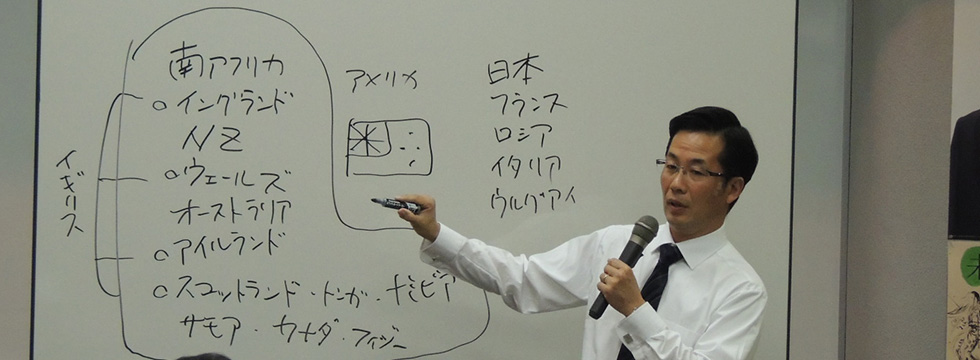 南アフリカ
○イングランド
NZ
○ウェールズ
オーストラリア
○アイルランド
○スコットランド・トンガ・ナミビア
サモア・カナダ・フィジー
イギリス
アメリカ
日本
フランス
ロシア
イタリア
ウルグアイ